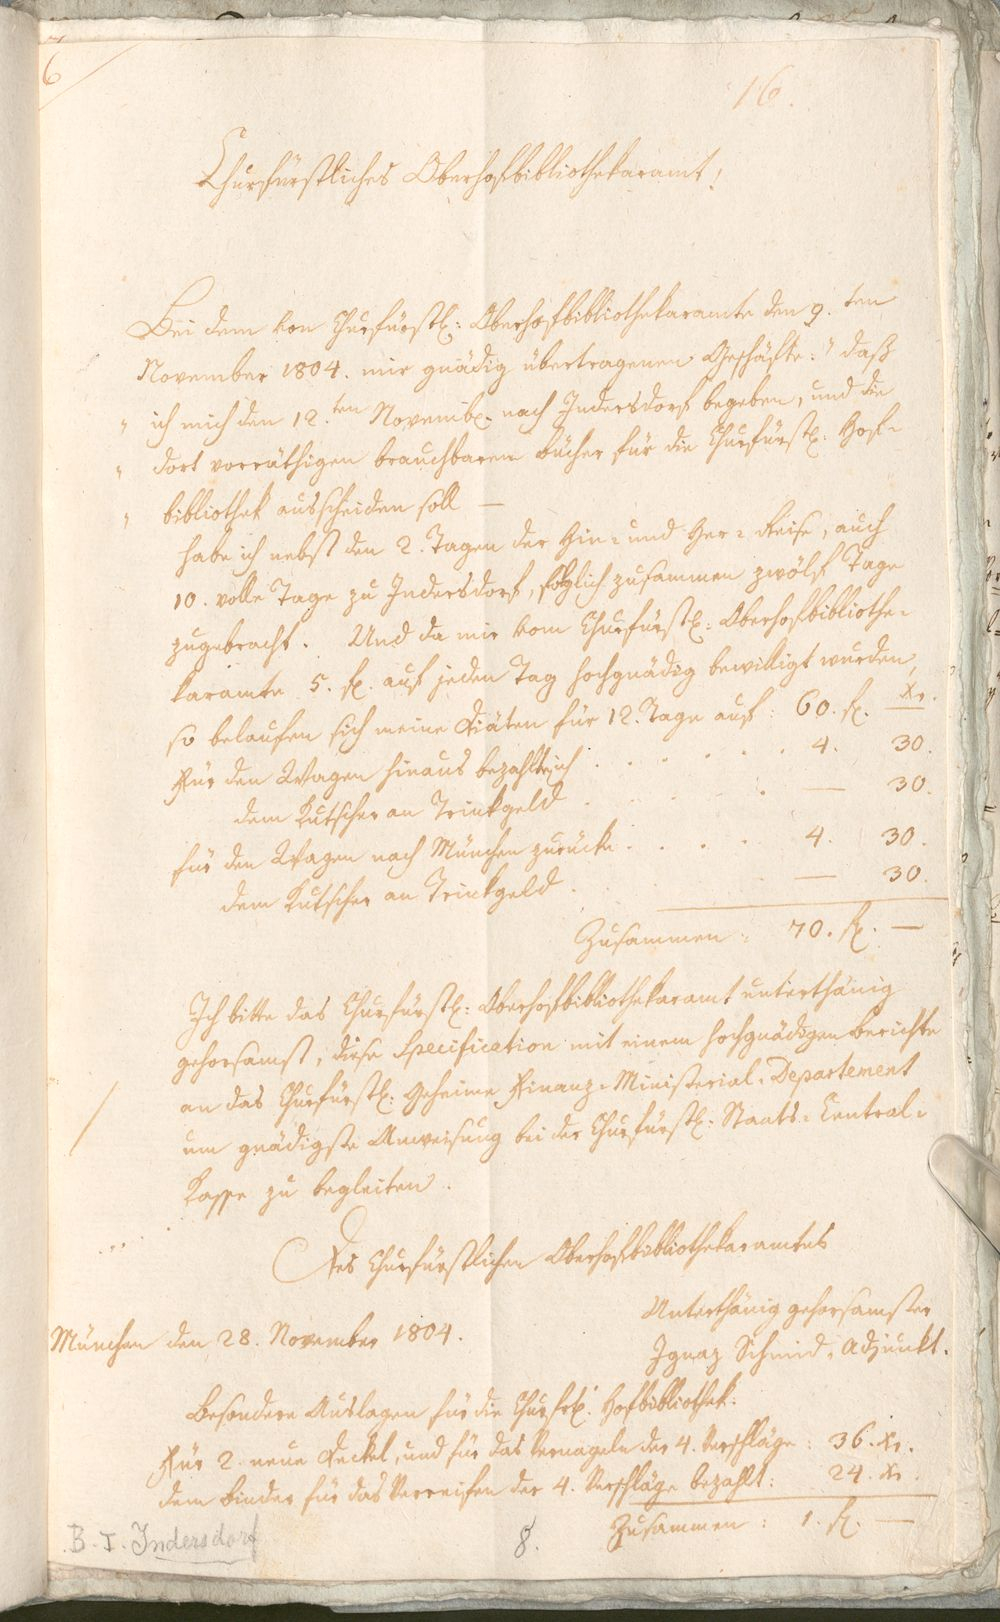 16.
Churfürstliches Oberhofbibliothekaramt!
Bei dem von Churfürstl: Oberhofbibliothekaramte den 9.ten
November 1804. mir gnädig übertragenen Geschäfte: " daß
" ich mich den 12.ten Novembr. nach Indersdorf begeben, und die
" dort vorräthigen brauchbaren Bücher für die Churfürstl. Hof-
" bibliothek ausscheiden soll —
habe ich nebst den 2. Tagen der Hin- und Her-Reise, auch
10. volle Tage zu Indersdorf, folglich zusammen zwölf Tage
zugebracht. Und da mir vom Churfürstl: Oberhofbibliothe-
karamte 5. fl. auf jeden Tag hochgnädig bewilligt wurden,
so belaufen sich meine Diäten für 12. Tage auf: 60. fl. — Xr.
Für den Wagen hinaus bezahlte ich . . . . . . 4. 30.
dem Kutscher an Trinkgeld . . . . . — 30.
für den Wagen nach München zurücke . . . . 4. 30.
dem Kutscher an Trinkgeld . . . . — 30.
Zusammen: 70. fl. —
Ich bitte das Churfürstl: Oberhofbibliothekaramt unterthänig
gehorsamst, diese Specification mit einem hochgnädigen Berichte
an das Churfürstl: Geheime Finanz-Ministerial-Departement
um gnädigste Anweisung bei der Churfürstl: Staats-Central-
Kasse zu begleiten.
Des Churfürstlichen Oberhofbibliothekaramtes
Unterthänig gehorsamster
München den 28. November 1804.
Ignaz Schmid, Adjunkt.
Besondere Auslagen für die Churfrtl. Hofbibliothek:
Für 2. neue Deckel, und für das Vernageln der 4. Verschläge: 36. Xr.
dem Binder für das Verreifen der 4. Verschläge bezahlt: 24. Xr.
Zusammen: 1. fl. —
B. I. Indersdorf
8.